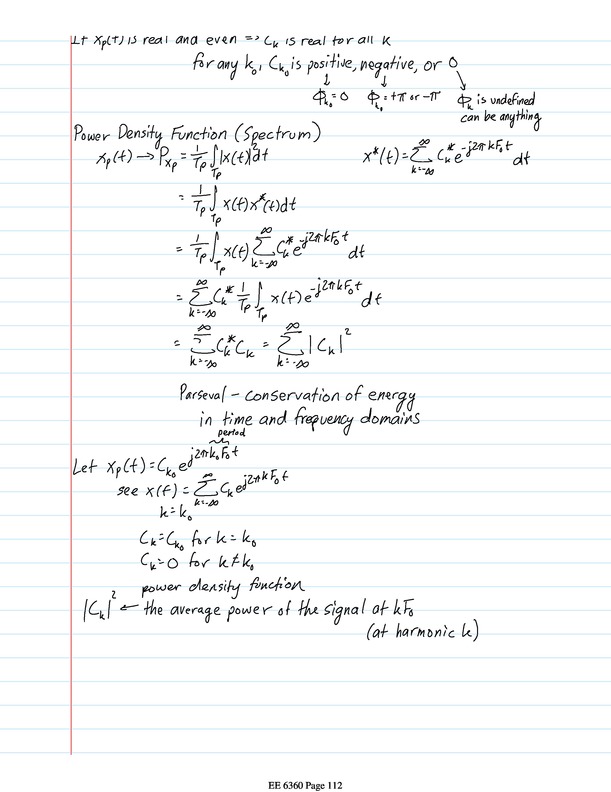 If xₚ(t) is real and even => Cₖ is real for all k
for any k₀, Cₖ₀ is positive, negative, or 0
↓ ↓ ↘
Φₖ₀=0 Φₖ₀=+π or -π Φₖ is undefined
can be anything
Power Density Function (Spectrum)
xₚ(t) → Pₓₚ = 1/Tₚ ∫_Tₚ |x(t)|² dt x*(t) = Σ_{k=-∞}^{∞} Cₖ* e^{-j2πkF₀t} dt
= 1/Tₚ ∫_Tₚ x(t)x*(t)dt
= 1/Tₚ ∫_Tₚ x(t) Σ_{k=-∞}^{∞} Cₖ* e^{-j2πkF₀t} dt
= Σ_{k=-∞}^{∞} Cₖ* 1/Tₚ ∫_Tₚ x(t) e^{-j2πkF₀t} dt
= Σ_{k=-∞}^{∞} Cₖ* Cₖ = Σ_{k=-∞}^{∞} |Cₖ|²
Parseval - conservation of energy
in time and frequency domains
period
Let xₚ(t) = Cₖ₀ e^{j2πk₀F₀t}
see x(t) = Σ_{k=-∞}^{∞} Cₖ e^{j2πkF₀t}
k=k₀
Cₖ = Cₖ₀ for k = k₀
Cₖ = 0 for k ≠ k₀
power density function
|Cₖ|² ← the average power of the signal at kF₀
(at harmonic k)
EE 6360 Page 112